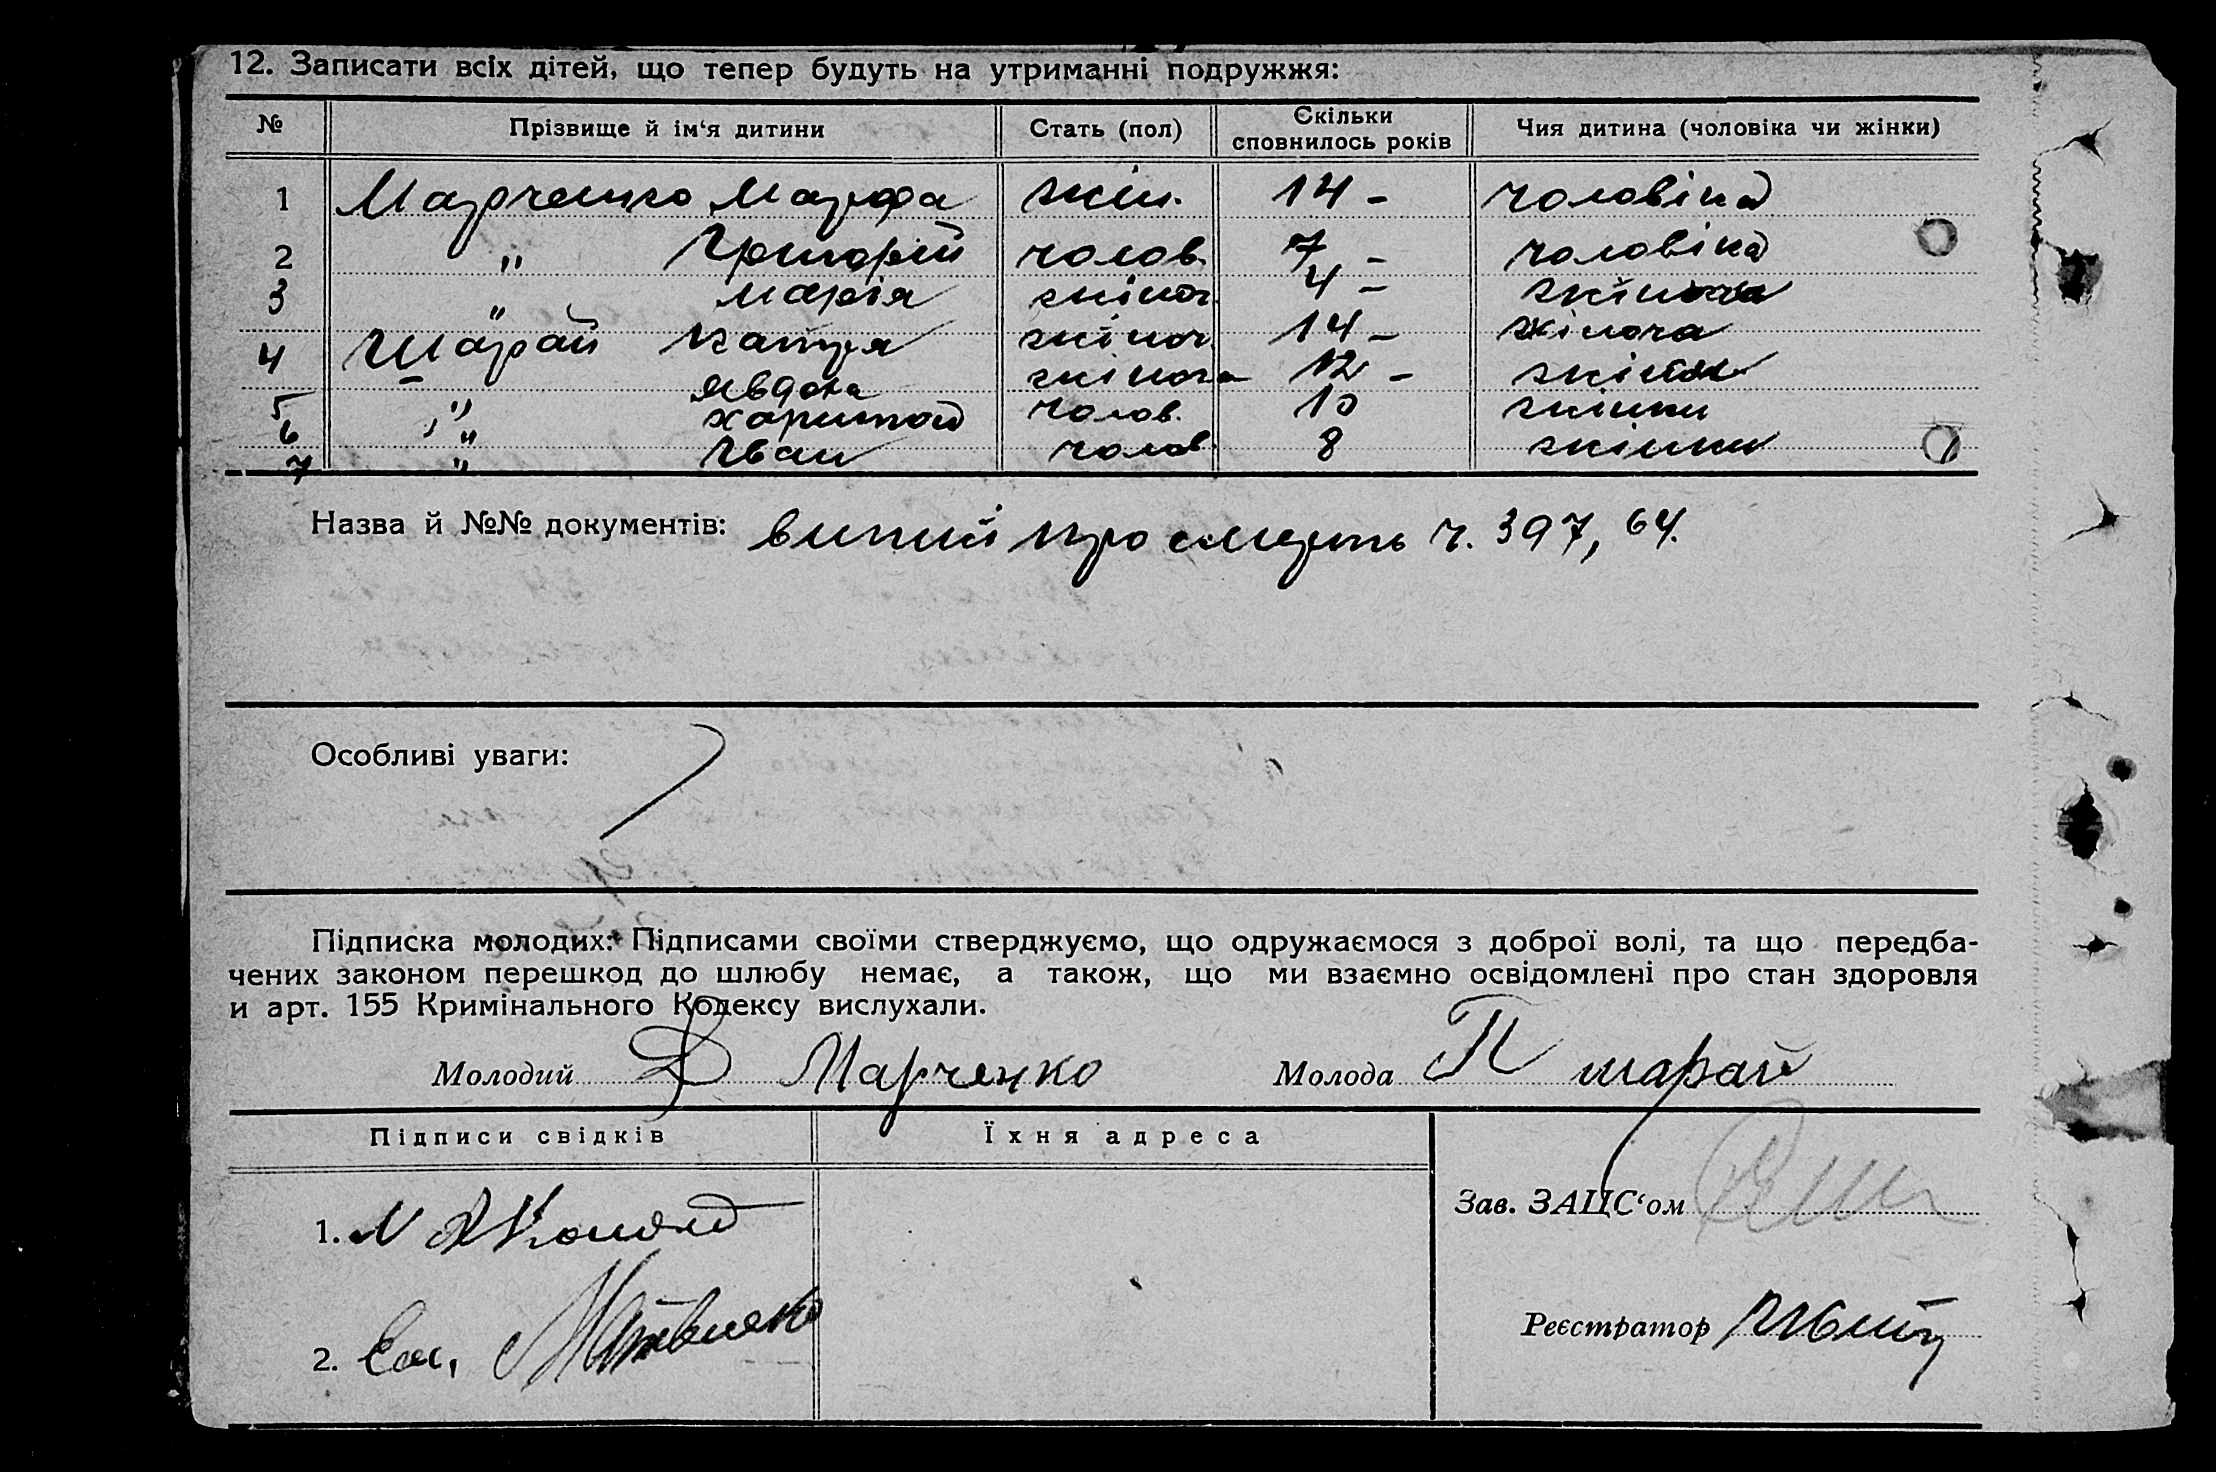 12. Записати всіх дітей, що тепер будуть на утриманні подружжя:
№ Прізвище й ім‘я дитини Стать (пол) Скільки сповнилось років Чия дитина (чоловіка чи жінки)
1 Марченко Марфа жін. 14 - чоловіка
2 " Григорій чолов. 7 - чоловіка
3 " Марія жіноч. 4 -
4 Шарай Катря жіноч. 14 - жіноча
5 " Явдоха жіноча 12 -
6 " Харитон чолов. 10 жінки
7 " Іван чолов. 8 жінки
Назва й №№ документів: випис про смерть ч. 397, 64.
Особливі уваги:
Підписка молодих: Підписами своїми стверджуємо, що одружаємося з доброї волі, та що передба-
чених законом перешкод до шлюбу немає, а також, що ми взаємно освідомлені про стан здоровля
и арт. 155 Кримінального Кодексу вислухали.
Молодий Д Марченко Молода П шарай
Підписи свідків Їхня адреса
Зав. ЗАЦС‘ом
1.
Реєстратор
2.